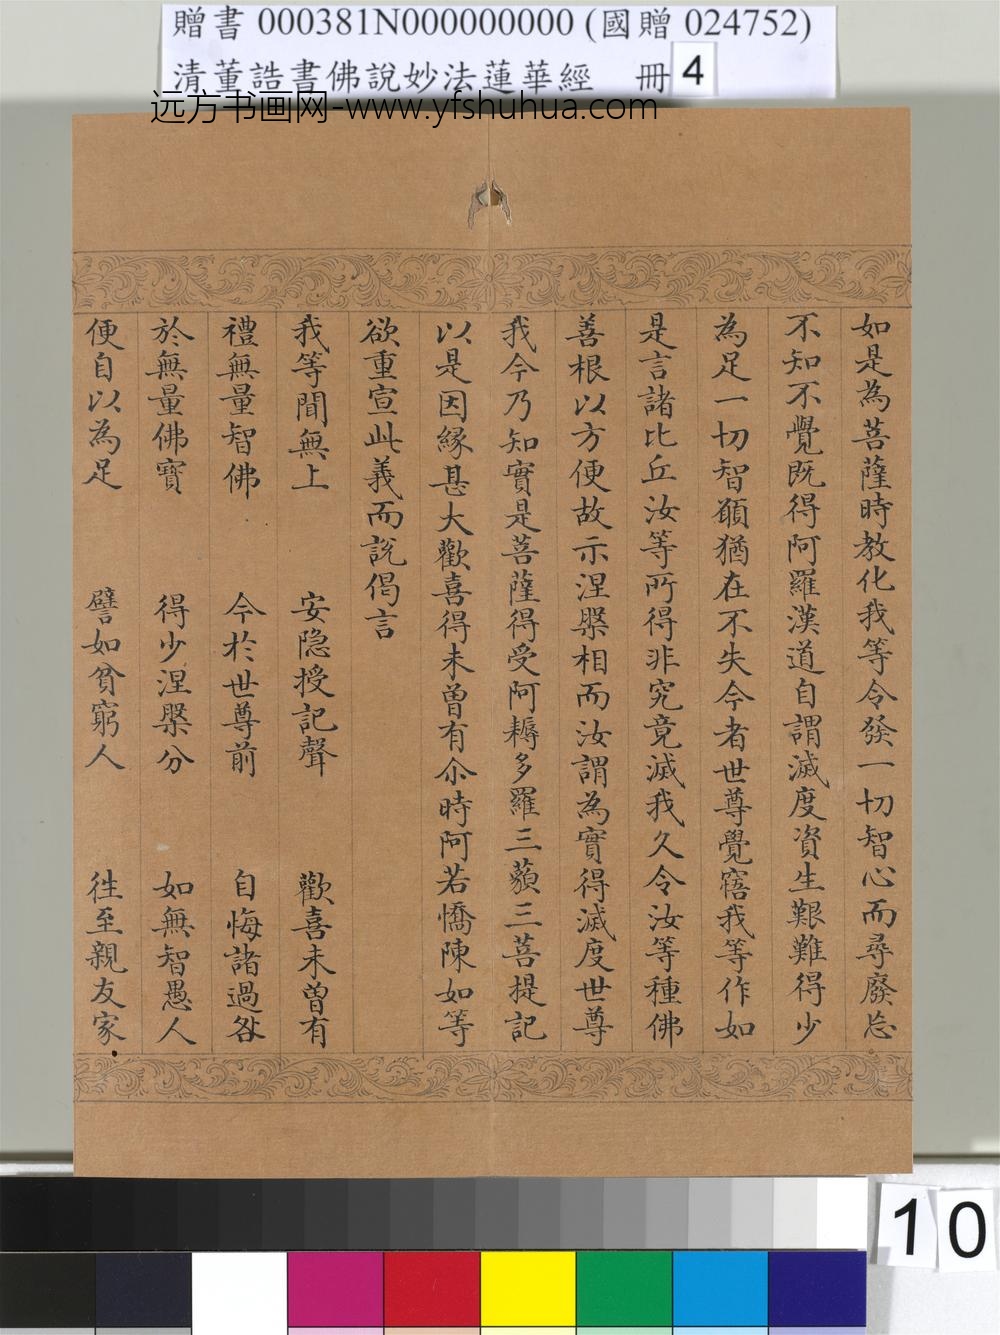 贈書 000381N000000000 (國贈 024752)
清董誥書佛說妙法蓮華經 冊 4
远方书画网-www.yfshuhua.com
如是為菩薩時教化我等令發一切智心而尋廢忘
不知不覺既得阿羅漢道自謂滅度資生艱難得少
為足一切智願猶在不失今者世尊覺寤我等作如
是言諸比丘汝等所得非究竟滅我久令汝等種佛
善根以方便故示涅槃相而汝謂為實得滅度世尊
我今乃知實是菩薩得受阿耨多羅三藐三菩提記
以是因緣甚大歡喜得未曾有尒時阿若憍陳如等
欲重宣此義而說偈言
我等聞無上 安隐授記聲 歡喜未曾有
禮無量智佛 今於世尊前 自悔諸過咎
於無量佛寶 得少涅槃分 如無智愚人
便自以為足 譬如貧窮人 往至親友家
10